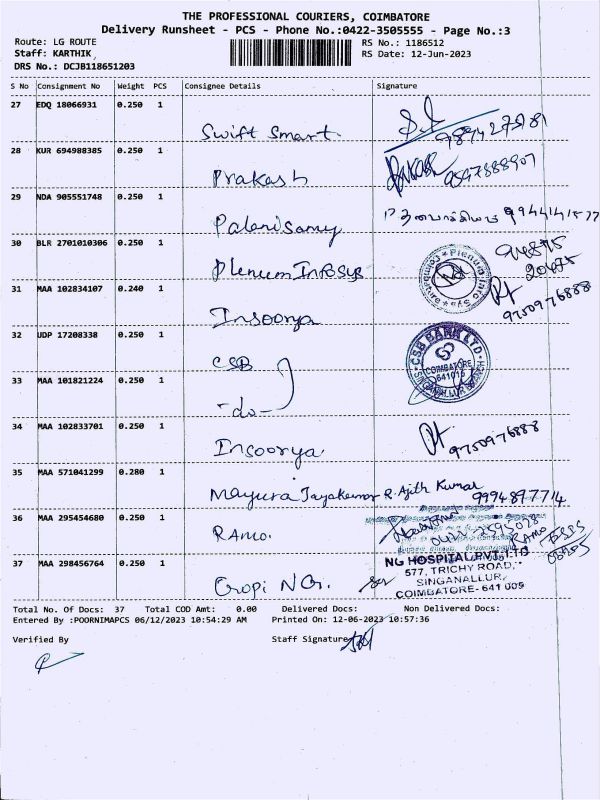 THE PROFESSIONAL COURIERS, COIMBATORE
Delivery Runsheet - PCS - Phone No.:0422-3505555 - Page No.:3
Route: LG ROUTE RS No.: 1186512
Staff: KARTHIK, RS Date: 12-Jun-2023
DRS No.: DCJB118651203
S No Consignment No Weight PCS Consignee Details Signature
27 EDQ 18066931 0.250 1 Swift Smart.
28 KUR 694988385 0.250 1 Prakash
29 NDA 905551748 0.250 1 Palanisamy 9944141577
30 BLR 2701010306 0.250 1 Plenum Infosys 94875 20475
31 MAA 102834107 0.240 1 Insoorya 9750976888
32 UDP 17208338 0.250 1 CSB CSB BANK LTD. COIMBATORE 641015
33 MAA 101821224 0.250 1 -do-
34 MAA 102833701 0.250 1 Insoorya 9750976888
35 MAA 571041299 0.280 1 Mayura Jayakumar R. Ajith Kumar 9994897714
36 MAA 295454680 0.250 1 RAMO. RAMO
37 MAA 298456764 0.250 1 Gropi NGr. NG HOSPITAL PVT. LTD
577, TRICHY ROAD,
SINGANALLUR,
COIMBATORE- 641 005
Total No. Of Docs: 37 Total COD Amt: 0.00 Delivered Docs: Non Delivered Docs:
Entered By :POORNIMAPCS 06/12/2023 10:54:29 AM Printed On: 12-06-2023 10:57:36
Verified By Staff Signature